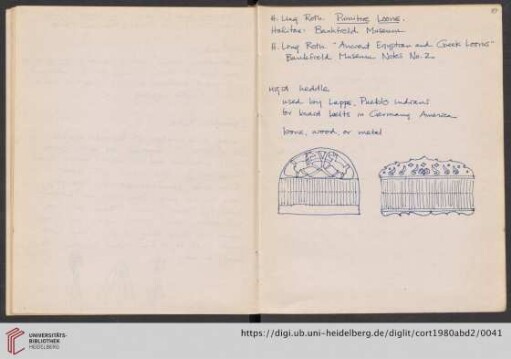 H. Ling Roth. Primitive Looms.
Halifax: Bankfield Museum
H. Ling Roth "Ancient Egyptian and Greek Looms"
Bankfield Museum Notes No. 2.
rigid heddle
used by Lapps, Pueblo Indians
for braid belts in Germany America
bone, wood, or metal
UNIVERSITÄTS-
BIBLIOTHEK
HEIDELBERG
https://digi.ub.uni-heidelberg.de/diglit/cort1980abd2/0041